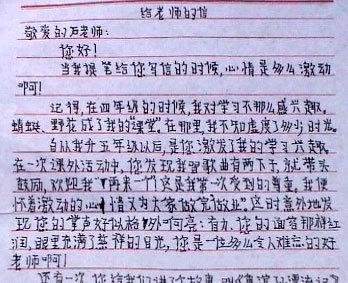 给老师的信
敬爱的石老师:
您好!
当我提笔给您写信的时候,心情是多么激动
啊!
记得,在四年级的时候,我对学习不那么感兴趣。
蜻蜓、野花成了我的"课堂"。在那里,我不知虚度了多少时光。
自从我升五年级以后,是您激发了我的学习兴趣。
在一次课外活动中,您发现我唱歌曲有两下子,就带头
鼓励,欢迎我"再来一个"这是我第一次受到的尊重,我便
怀着激动的心情又为大家做完做业"这时意外地发
现您的掌声好似格外响亮:有力,您的面容那样红
润,眼里充满了慈祥的目光,您是一位多么令人难忘的好
老师啊!
还有一次,您给我们讲了个故事